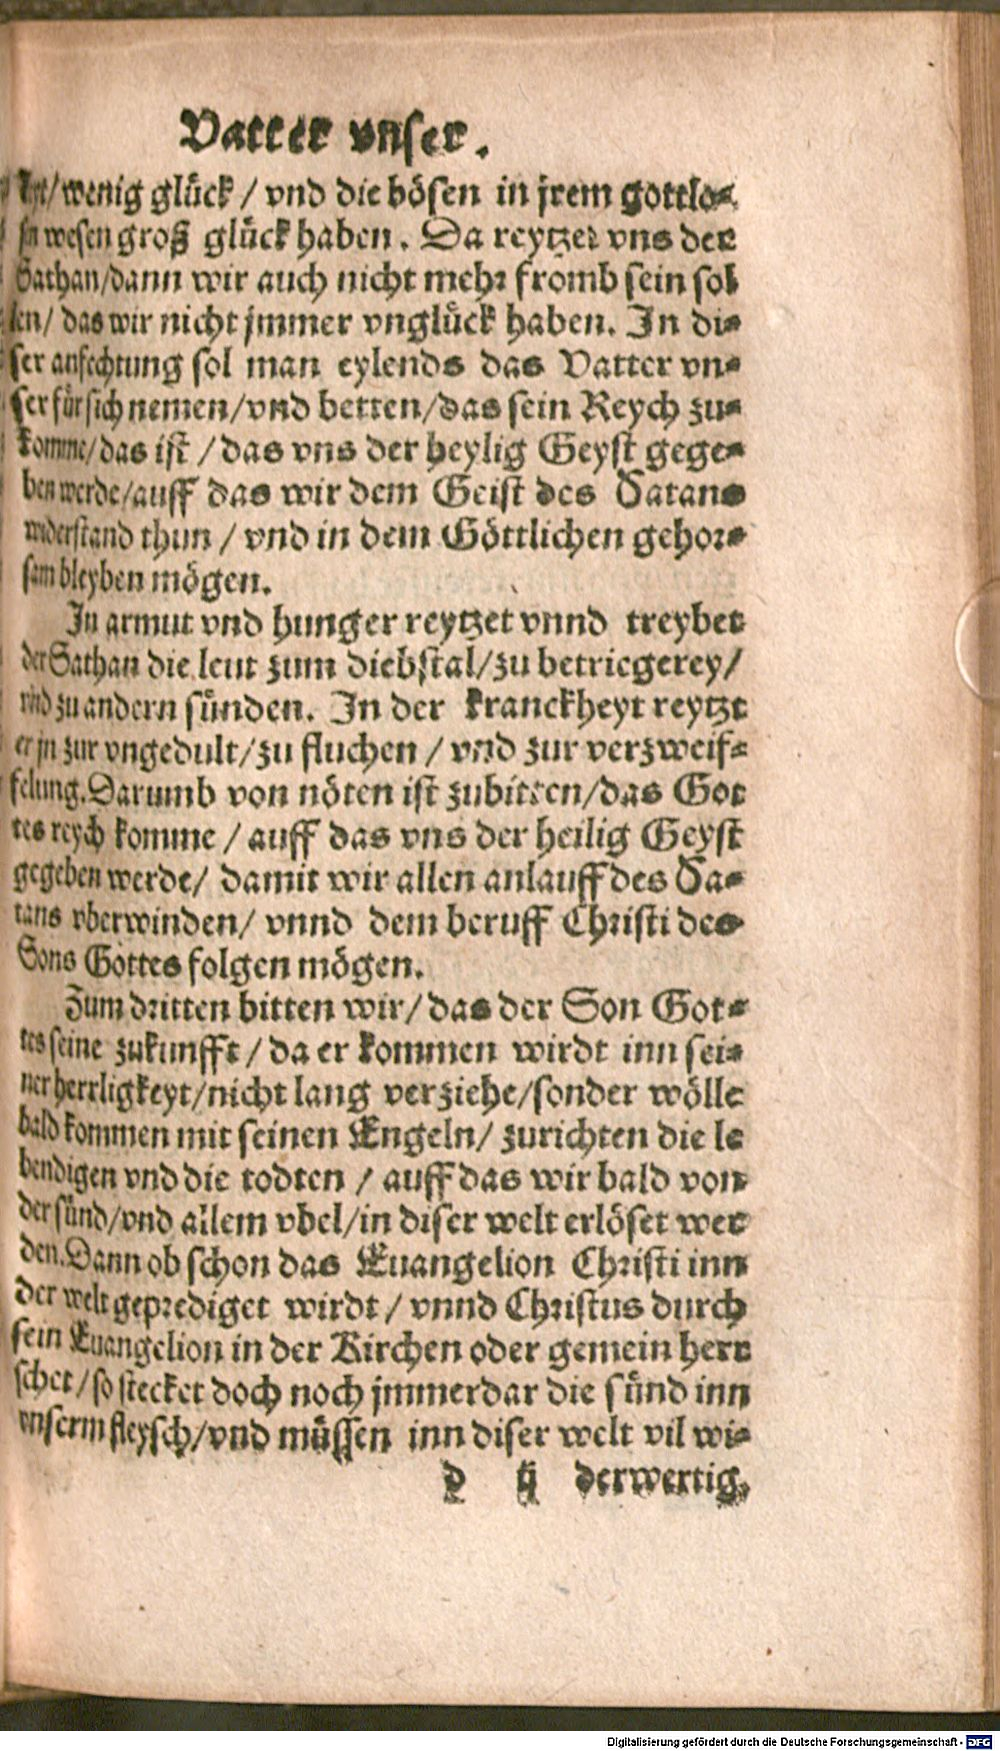 Vatter vnser.
wenig glück / vnd die bösen in jrem gottlo-
sen wesen groß glück haben. Da reytzet vns der
Sathan/dann wir auch nicht mehr fromb sein sol
len/ das wir nicht jmmer vnglück haben. In di-
ser anfechtung sol man eylends das Vatter vn-
ser für sich nemen/vnd betten/das sein Reych zu-
komme/das ist / das vns der heylig Geyst gege-
ben werde/auff das wir dem Geist des Satans
widerstand thun / vnd in dem Göttlichen gehor-
sam bleyben mögen.
In armut vnd hunger reytzet vnnd treybet
der Sathan die leut zum diebstal/zu betriegerey/
vnd zu andern sünden. In der kranckheyt reytzt
er jn zur vngedult/zu fluchen / vnd zur verzweif-
felung. Darumb von nöten ist zubitten/das Got
tes reych komme / auff das vns der heilig Geyst
gegeben werde/ damit wir allen anlauff des Sa-
tans vberwinden/ vnnd dem beruff Christi des
Sons Gottes folgen mögen.
Zum dritten bitten wir/ das der Son Got-
tes seine zukunfft / da er kommen wirdt inn sei-
ner herrligkeyt/nicht lang verziehe/sonder wölle
bald kommen mit seinen Engeln/ zurichten die le
bendigen vnd die todten / auff das wir bald von
der sünd/vnd allem vbel/in diser welt erlöset wer
den. Dann ob schon das Euangelion Christi inn
der welt geprediget wirdt / vnnd Christus durch
sein Euangelion in der Kirchen oder gemein herr
schet / so stecket doch noch jmmerdar die sünd inn
vnserm fleysch/vnd müssen inn diser welt vil wi-
d ij derwertig.
Digitalisierung gefördert durch die Deutsche Forschungsgemeinschaft - DFG